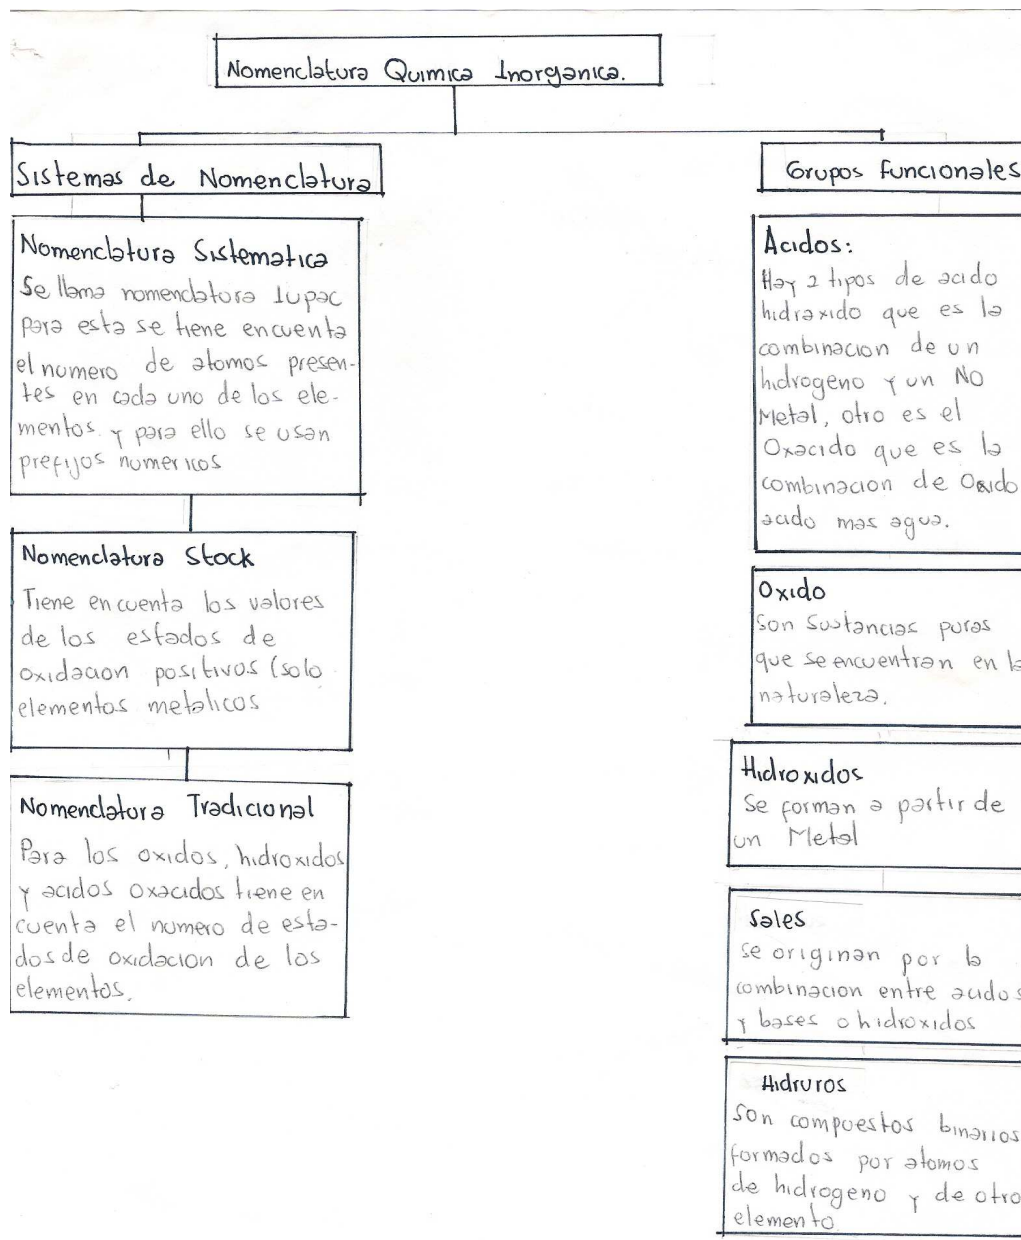 Nomenclatura Quimica Inorganica.
Sistemas de Nomenclatura
Nomenclatura Sistematica
Se llama nomenclatura Iupac
para esta se tiene encuenta
el numero de atomos presen-
tes en cada uno de los ele-
mentos. y para ello se usan
prefijos numericos
Nomenclatura Stock
Tiene en cuenta los valores
de los estados de
oxidacion positivos (solo
elementos metalicos
Nomenclatura Tradicional
Para los oxidos, hidroxidos
y acidos oxacidos tiene en
cuenta el numero de esta-
dos de oxidacion de los
elementos.
Grupos funcionales
Acidos:
Hay 2 tipos de acido
hidraxido que es la
combinacion de un
hidrogeno y un NO
Metal, otro es el
Oxacido que es la
combinacion de Oxido
acido mas agua.
Oxido
Son Sustancias puras
que se encuentran en la
naturaleza.
Hidroxidos
Se forman a partir de
un Metal
Sales
se originan por la
combinacion entre acidos
y bases o hidroxidos
Hidruros
Son compuestos binarios
formados por atomos
de hidrogeno y de otro
elemento.